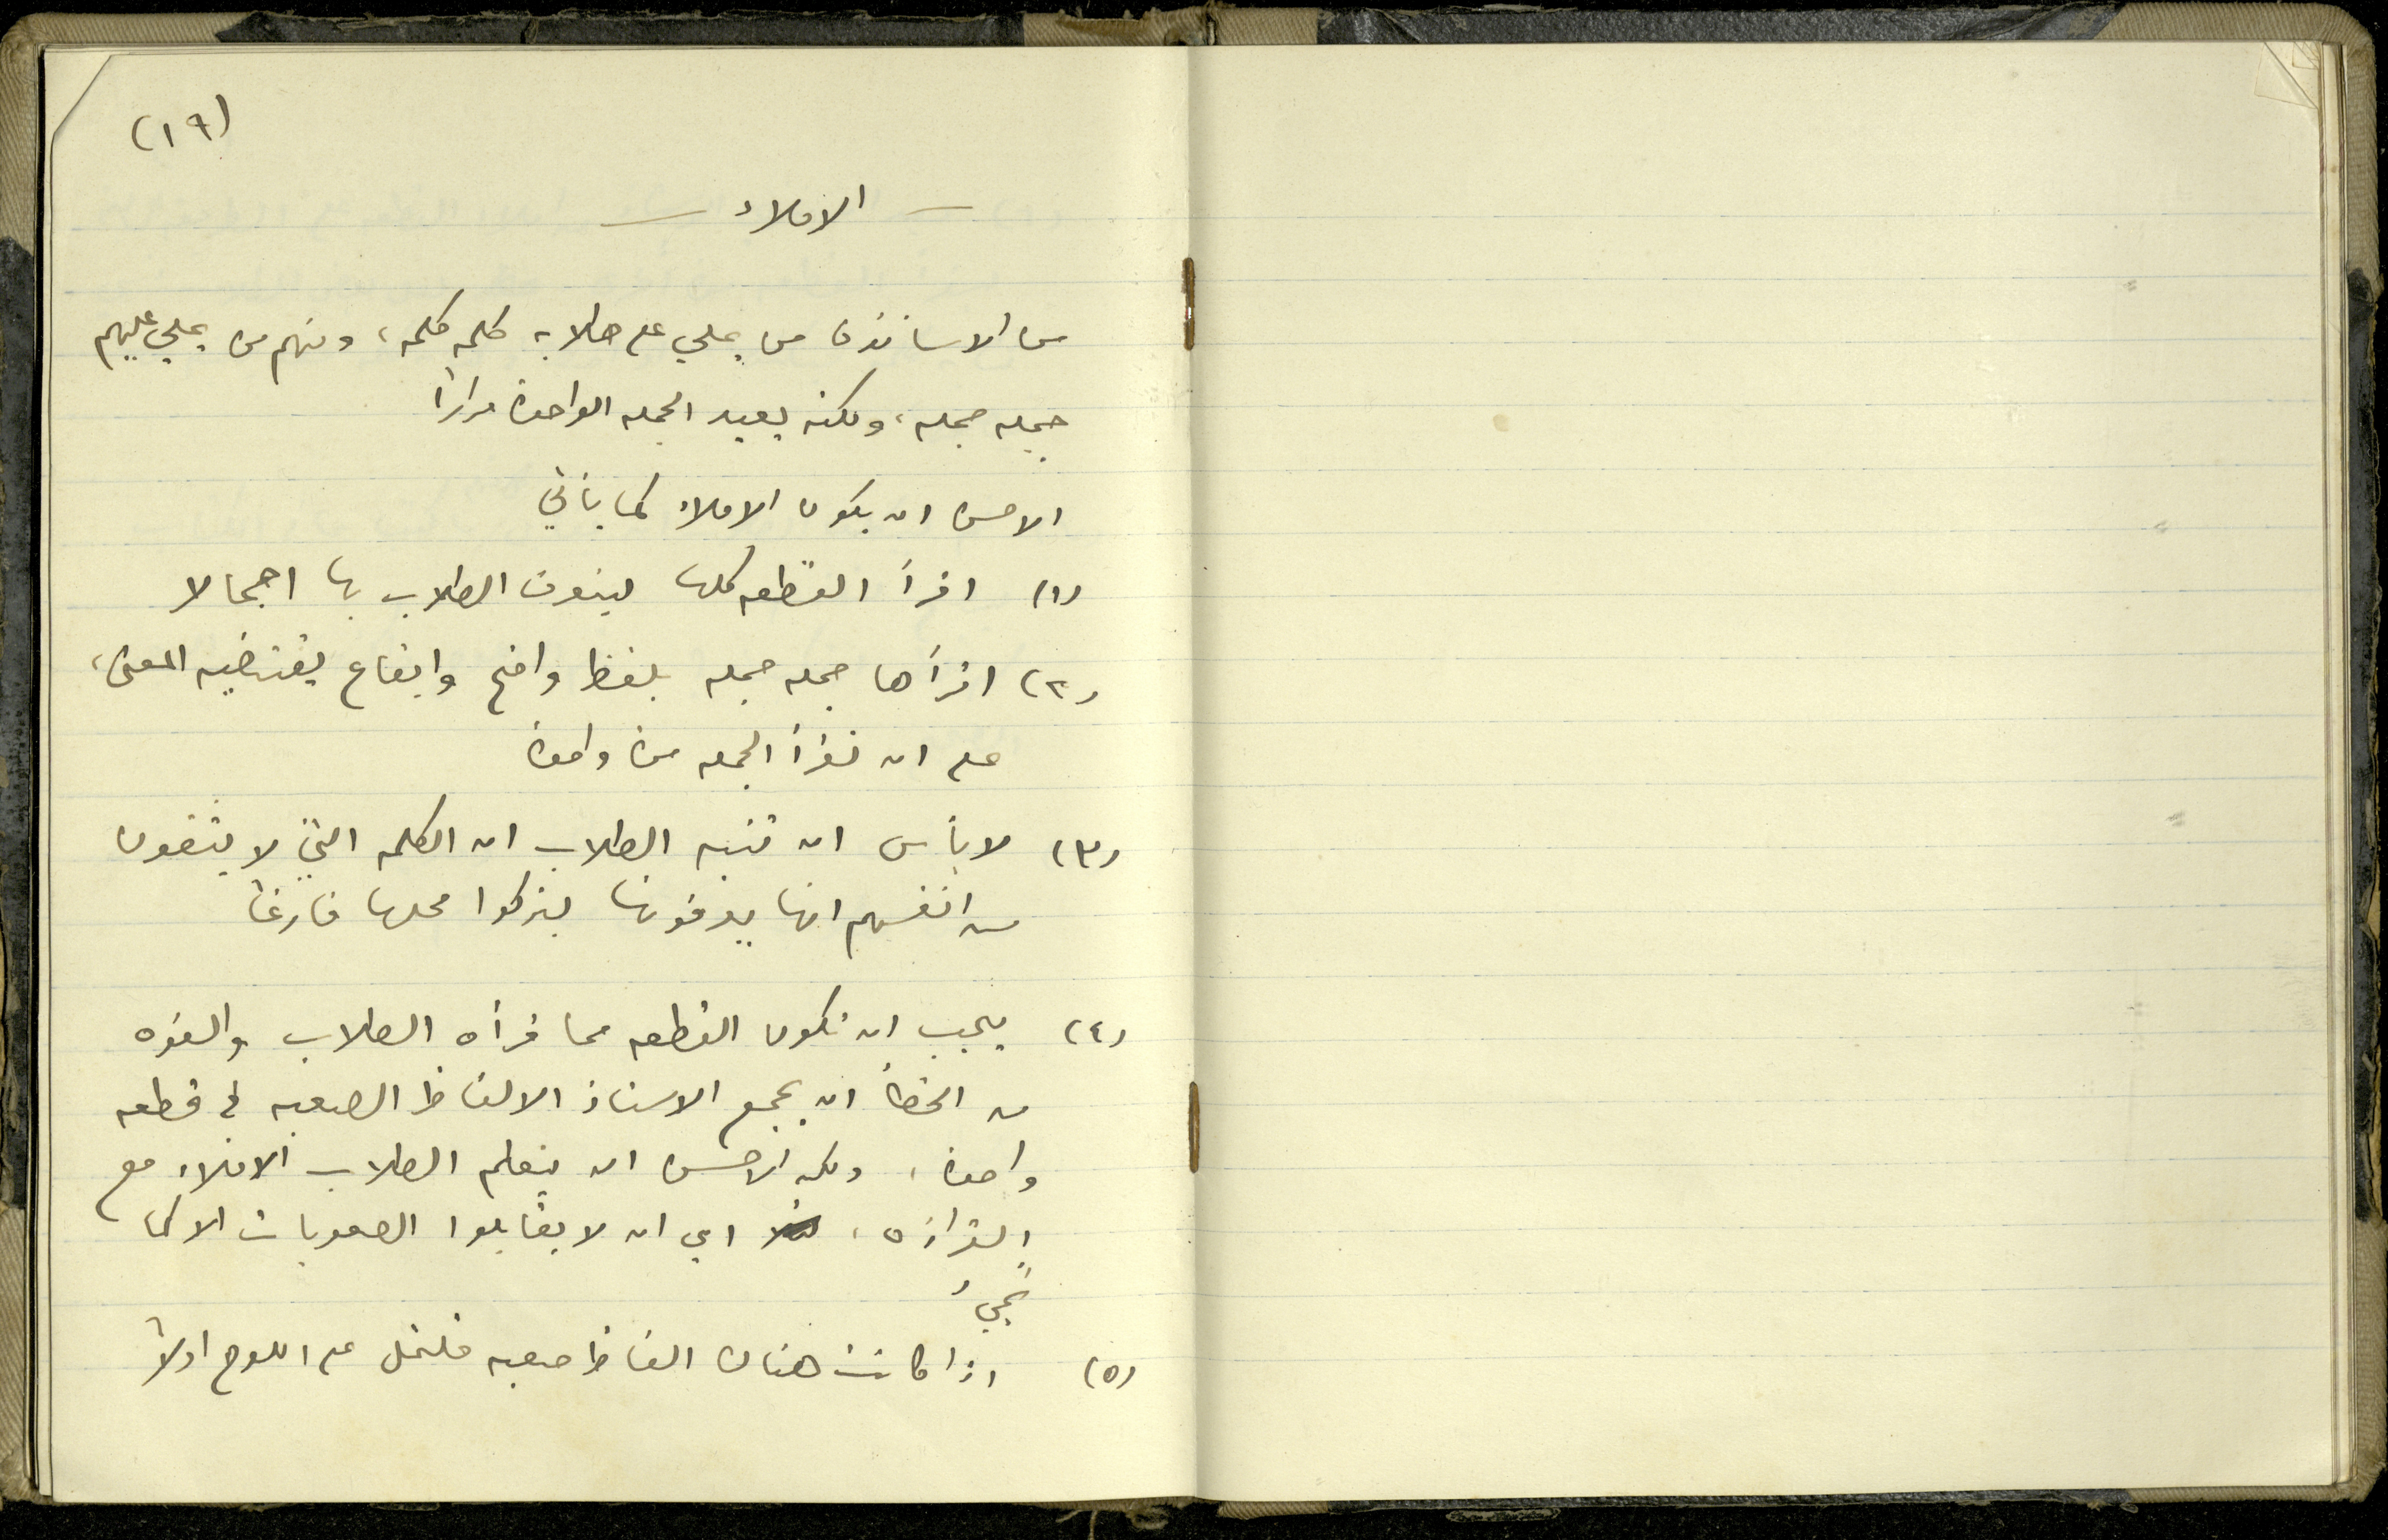 (١٩)
— الاملاء —
من الاساتذة من يملي على طلابه كلمه كلمه، ومنهم من يملي عليهم
جمله جمله، ولكنه يعيد الجمله الواحدة مراراً
الاحسن ان يكون الاملاء كما يأتي
(١) اقرأ القطعه كلها ليعرف الطلاب بها اجمالا
(٢) اقرأها جمله جمله بلفظ واضح وايقاع يقتضيه المعنى،
على ان تقرأ الجمله مرة واحدة
(٣) لا بأس ان تنبه الطلاب ان الكلمه التي لا يثقون
من انفسهم انها يعرفونها ليتركوا محلها فارغاً
(٤) يجب ان تكون القطعه مما قرأه الطلاب والفوه
من الخطأ ان يجمع الاستاذ الالفاظ الصعبه في قطعه
واحدة، ولكن الاحسن ان يتعلم الطلاب الاملاء مع
القراءه، اي ان لا يقابلوا الصعوبات الا كما
تجيءُ
(٥) اذا كانت هناك الفاظ صعبه على اللوح اولاً